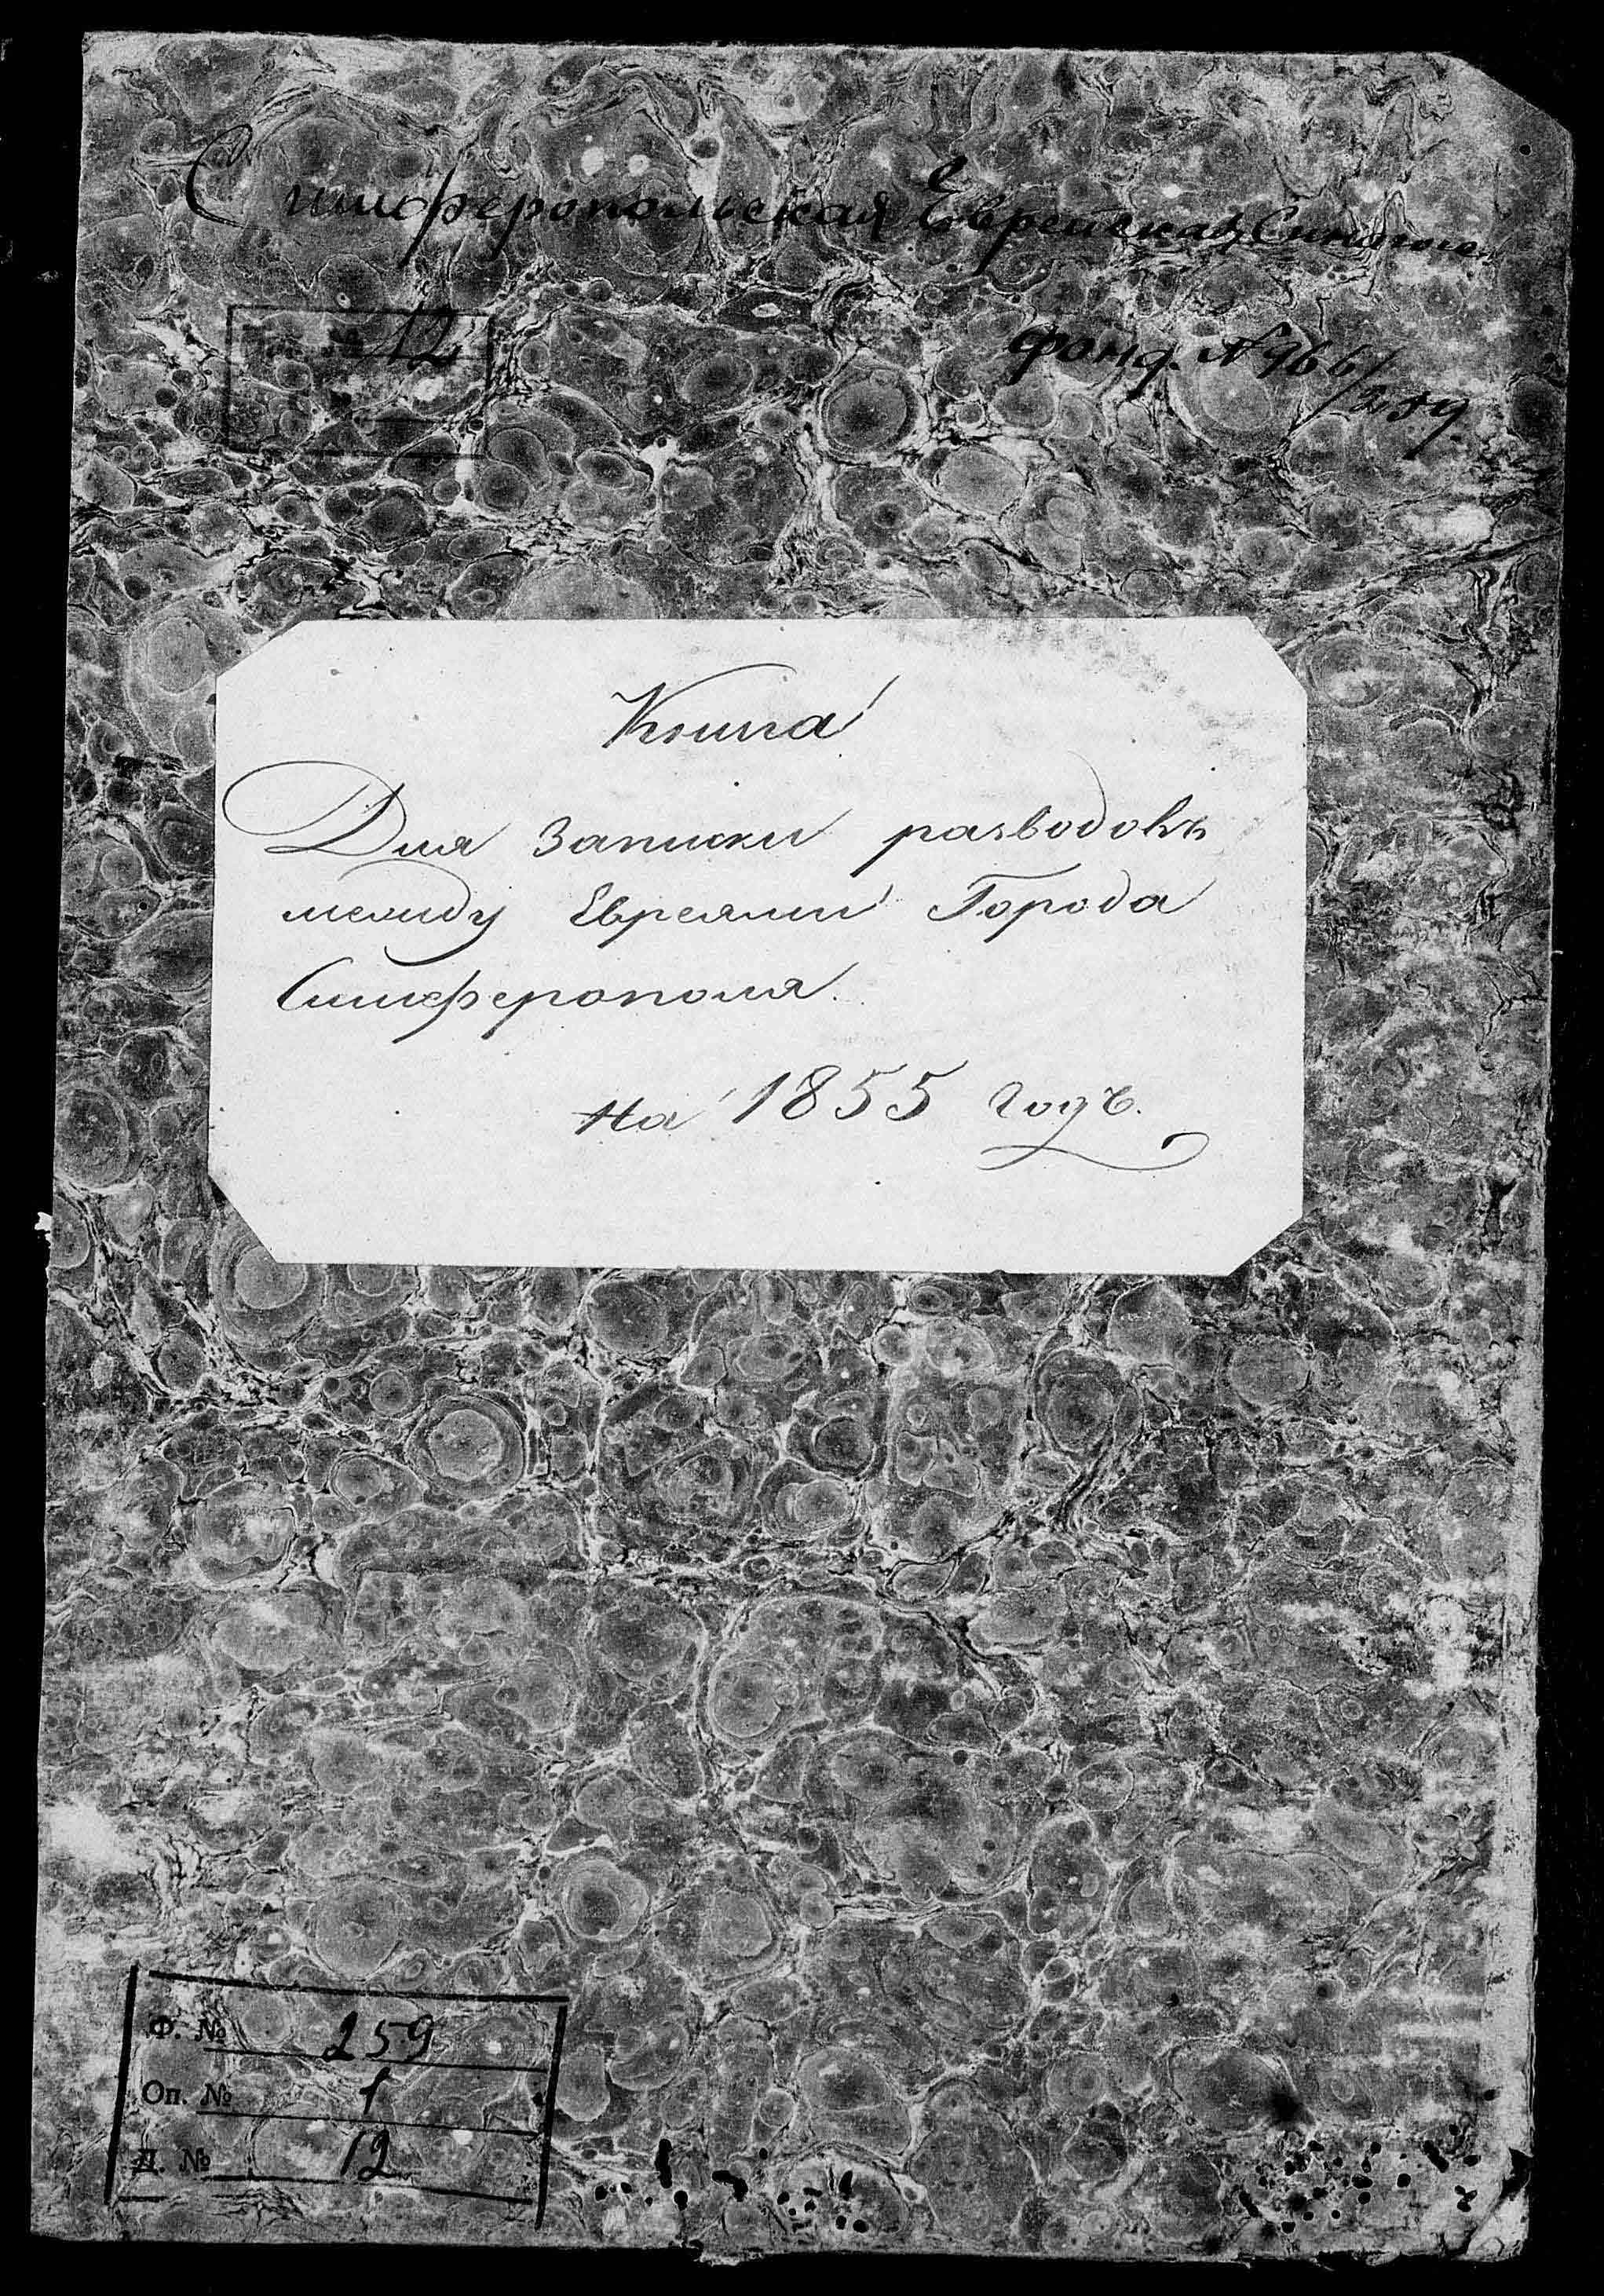 Симферопольская Еврейская Синагога
12
фонд. № 966/259
Книга
Для Записки разводовъ
между Евреями Города
Симферополя.
на 1855 годъ.
Ф. № 259
Оп. № 1
Д. № 12